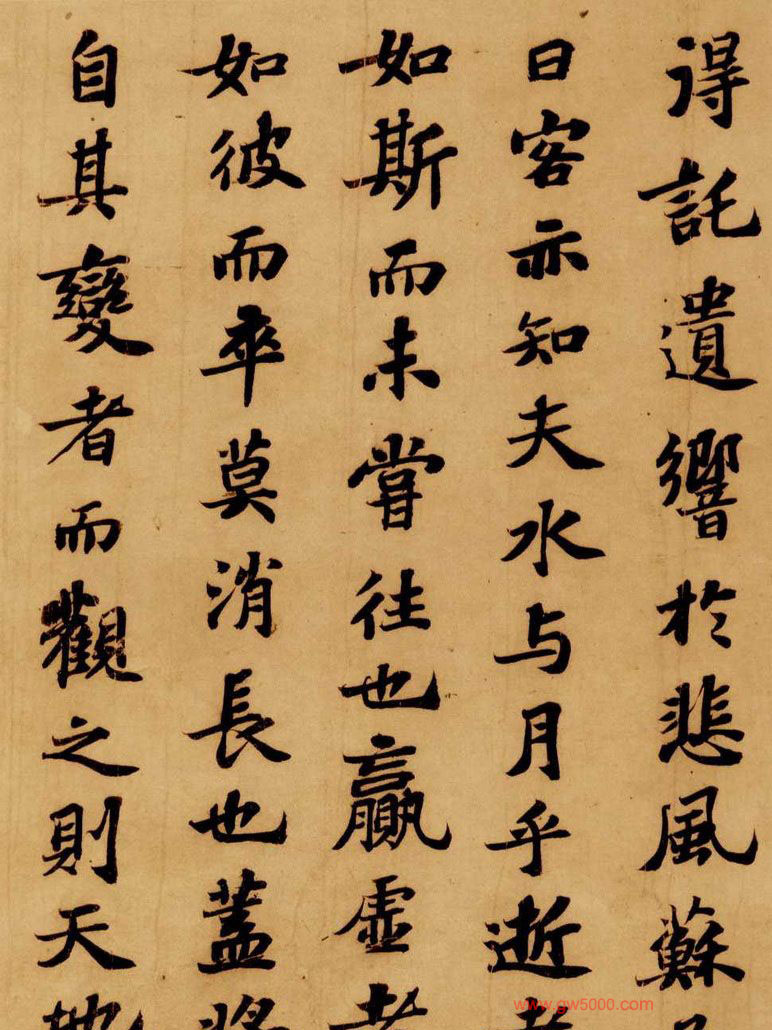 得託遺響於悲風蘇
曰客亦知夫水与月乎逝
如斯而未嘗往也贏虛者
如彼而卒莫消長也蓋將
自其變者而觀之則天地
www.gw5000.com